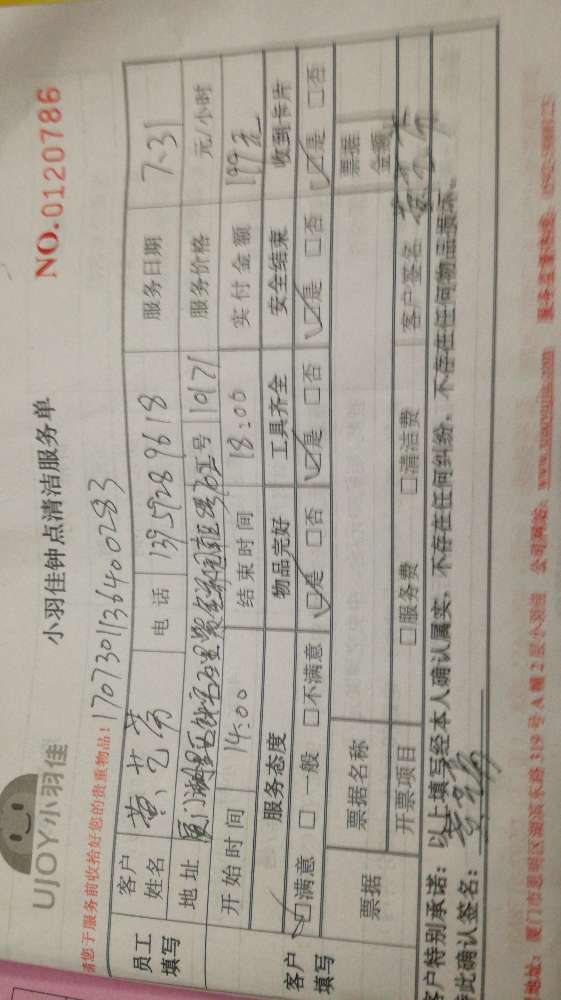 UJOY小羽佳
小羽佳钟点清洁服务单
NO.0120786
请您于服务前收拾好您的贵重物品!
17073011364000283
员工填写
客户姓名 黄艺芳 电话 13959289618 服务日期 7.31
地址 厦门 号 1017 服务价格 元/小时
开始时间 14:00 结束时间 18:00 实付金额 199元
客户填写
服务态度 物品完好 工具齐全 安全结束 收到卡片
□满意 □一般 □不满意 □是 □否 □是 □否 □是 □否 □是 □否
票据 票据名称 票据金额
开票项目 □服务费 □清洁费 客户签名
客户特别承诺:以上填写经本人确认属实,不存在任何纠纷,不存在任何物品损坏。
特此确认签名:
地址:厦门市思明区湖滨东路319号A幢2层小羽佳 公司网站: www.xiaoyujia.com 服务监督热线: